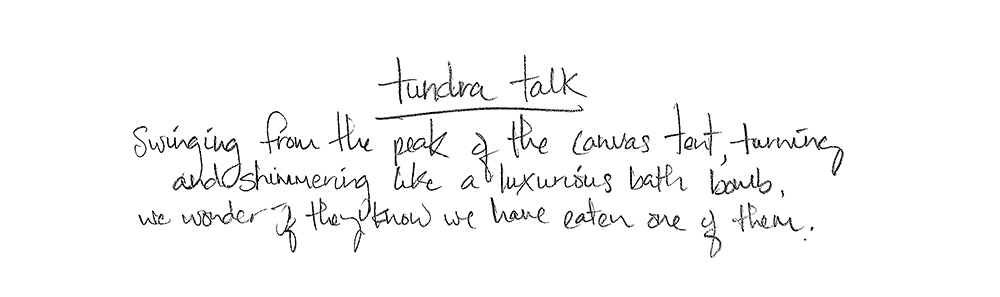 tundra talk
Swinging from the peak of the canvas tent, turning
and shimmering like a luxurious bath bomb,
we wonder if they know we have eaten one of them.